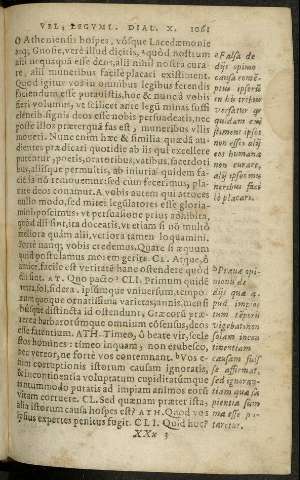 VEL, LEGVMI. DIAL. X. 1061
O Atheniensis hospes, vósque Lacedæmoniè
atq; Gnosie, verè illud dicitis, quòd nostrum
alii nequaquã esse deos, alii nihil nostra cura-
re, alii muneribus facilè placari existiment.
Quod igitur vos in omnibus legibus ferendis
faciendum esse putauistis, hoc & nunc à vobis
fieri volumus, vt scilicet ante legũ minas suffi-
cientib. signis deos esse nobis persuadeatis, nec
posse illos præter quã fas est, muneribus vllis
moueri. Nunc enim hæc & similia quædã au-
dientes prædicari quotidie ab iis qui excellere
putantur, poetis, oratoribus, vatibus, sacerdoti
bus, aliisque permultis, ab iniuria quidem fa-
ciẽda nõ remouemur: sed cum fecerimus, pla-
care deos conamur. A vobis autem qui atroces
nullo modo, sed mites legislatores esse gloria-
mini, poscimus: vt persuasione prius adhibita,
quòd dii sint, ita doceatis, vt etiam si nõ multò
meliora quàm alii, veriora tamen loquamini.
fortè nanq; vobis credemus. Quare si æquum
quid postulamus, morem gerite. CL. Atqui, ô
amice, facile est veritatè hanc ostendere quòd
dii sint. AT. Quo pacto? CLI. Primum quidẽ
terra, sol, sidera, ipsumque vniuersum, tempo-
rum quoque ornatissima varietas, annis mensi
busque distincta id ostendunt, Græcorũ præ-
terea barbarorũmque omnium cõsensus, deos
esse fatentium. ATH. Timeo, ô beate vir, scele
stos homines: timeo inquam, non erubesco,
nec vereor, ne fortè vos contemnant. Vos e-
nim corruptionis istorum causam ignoratis,
& incontinentia voluptatum cupiditatúmque
tantummodo putatis ad impiam animos eorũ
vitam corruere. CL. Sed quænam præter ista,
alia istorum causa hospes est? ATH. Quod vos
ipsius expertes penitus fugit. CLI. Quid hoc?
XXx 3
Falsa de
diis opinio
causa contẽ-
ptus ipsorũ
in his tribus
versatur
quidam em̃
putant ipsos
non esse: alii
eos humana
non curare,
alii ipsos mu
neribus faci-
lè placari.
Prauæ opi-
nionis de
diis quæ a-
pud impios
tum temporis
vigebat non
solam incon
tinentiam
causam fuis-
se affirmat,
sed ignoran-
tiam quæ sa
pientia sum
ma esse pu-
taretur.